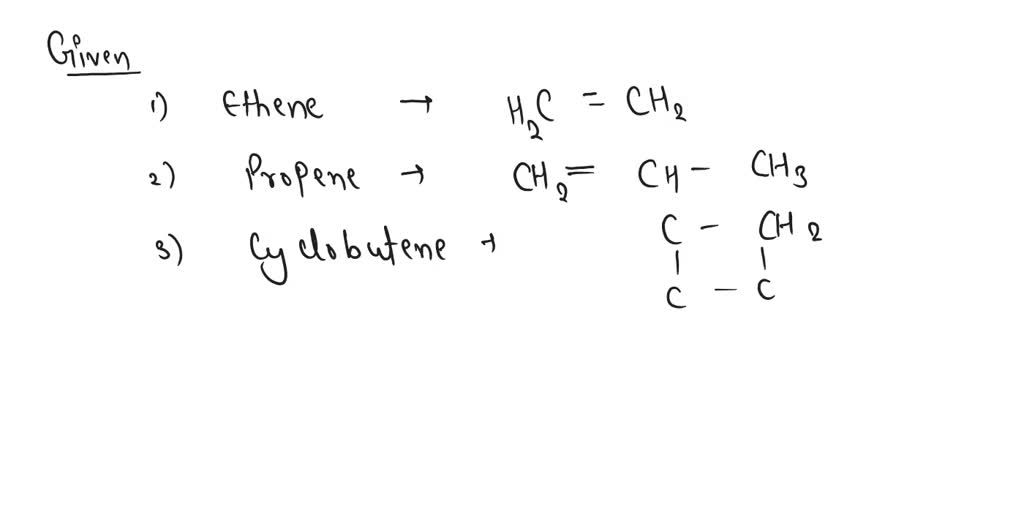 Given
1) Ethene → H2C = CH2
2) Propene → CH2 = CH - CH3
3) Cyclobutene → C - CH2
| |
C - C